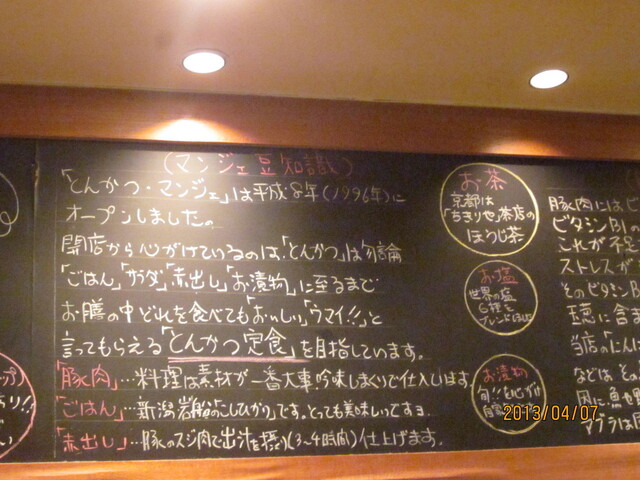 (マンジェ豆知識)
「とんかつ・マンジェ」は平成8年(1996年)に
オープンしました。
開店から心がけているのは「とんかつ」は勿論
「ごはん」「サラダ」「赤出し」「お漬物」に至るまで
お膳の中どれを食べても「おいしい」「ウマイ!!」と
言ってもらえる「とんかつ定食」を目指しています。
「豚肉」…料理は素材が一番大事、吟味しまくりで仕入します。
「ごはん」…新潟岩船のこしひかりです。とっても美味しいですヨ。
「赤出し」…豚のスジ肉で出汁を摂り(3~4時間)仕上げます。
お茶
京都は
「ちきりや」茶店の
ほうじ茶
お塩
世界の塩
6種を
ブレンドしました
お漬物
旬
自家
豚肉には
ビタミンB1の
これが不足
ストレスが
そのビタミンB
玉葱に含ま
当店の「にんに
などは、その
アブラは
2013/04/07